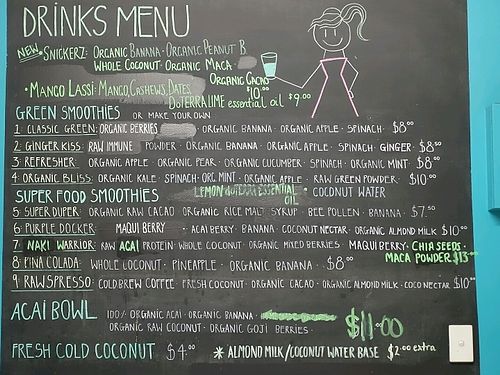 DRINKS MENU
NEW SNICKERZ: ORGANIC BANANA · ORGANIC PEANUT B
WHOLE COCONUT · ORGANIC MACA ·
ORGANIC CACAO
$10.00
· MANGO LASSI: MANGO, CASHEWS, DATES
DOTERRA LIME essential oil $9.00
GREEN SMOOTHIES OR MAKE YOUR OWN
1. CLASSIC GREEN: ORGANIC BERRIES · ORGANIC BANANA · ORGANIC APPLE · SPINACH · $8.00
2. GINGER KISS: RAW IMMUNE POWDER · ORGANIC BANANA · ORGANIC APPLE · SPINACH · GINGER · $8.00
3. REFRESHER: ORGANIC APPLE · ORGANIC PEAR · ORGANIC CUCUMBER · SPINACH · ORGANIC MINT · $8.00
4. ORGANIC BLISS: ORGANIC KALE · SPINACH · ORG. MINT · ORGANIC APPLE · RAW GREEN POWDER · $10.00
SUPER FOOD SMOOTHIES LEMON ESSENTIAL OIL · COCONUT WATER
5. SUPER DUPER: ORGANIC RAW CACAO · ORGANIC RICE MALT SYRUP · BEE POLLEN · BANANA · $7.50
6. PURPLE DOCKER: MAQUI BERRY · ACAI BERRY · BANANA · COCONUT NECTAR · ORGANIC ALMOND MILK $10.00
7. NAKI WARRIOR: RAW ACAI PROTEIN · WHOLE COCONUT · ORGANIC MIXED BERRIES · MAQUI BERRY · CHIA SEEDS ·
MACA POWDER $13.00
8. PINA COLADA: WHOLE COCONUT · PINEAPPLE · ORGANIC BANANA · $8.00
9. RAWSPRESSO: COLD BREW COFFEE · FRESH COCONUT · ORGANIC CACAO · ORGANIC ALMOND MILK · COCO NECTAR $10.00
ACAI BOWL 100% ORGANIC ACAI · ORGANIC BANANA ·
ORGANIC RAW COCONUT · ORGANIC GOJI BERRIES · $11.00
FRESH COLD COCONUT $4.00 * ALMOND MILK/COCONUT WATER BASE $2.00 extra